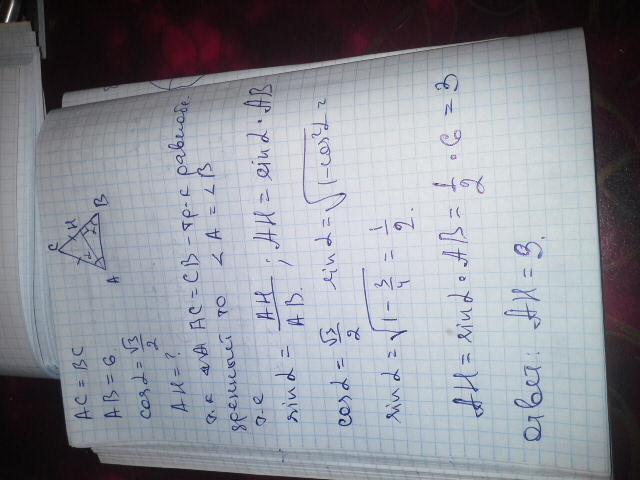 AC = BC
AB = 6
cos α = √3/2
AH = ?
C
H
A
B
т.к AC = CB - тр-к равнобе
дренный то ∠A = ∠B
т.е
sin α = AH/AB ; AH = sin α · AB
cos α = √3/2 sin α = √1-cos²α =
sin α = √1-3/4 = 1/2.
AH = sin α · AB = 1/2 · 6 = 3
Ответ: AH = 3.